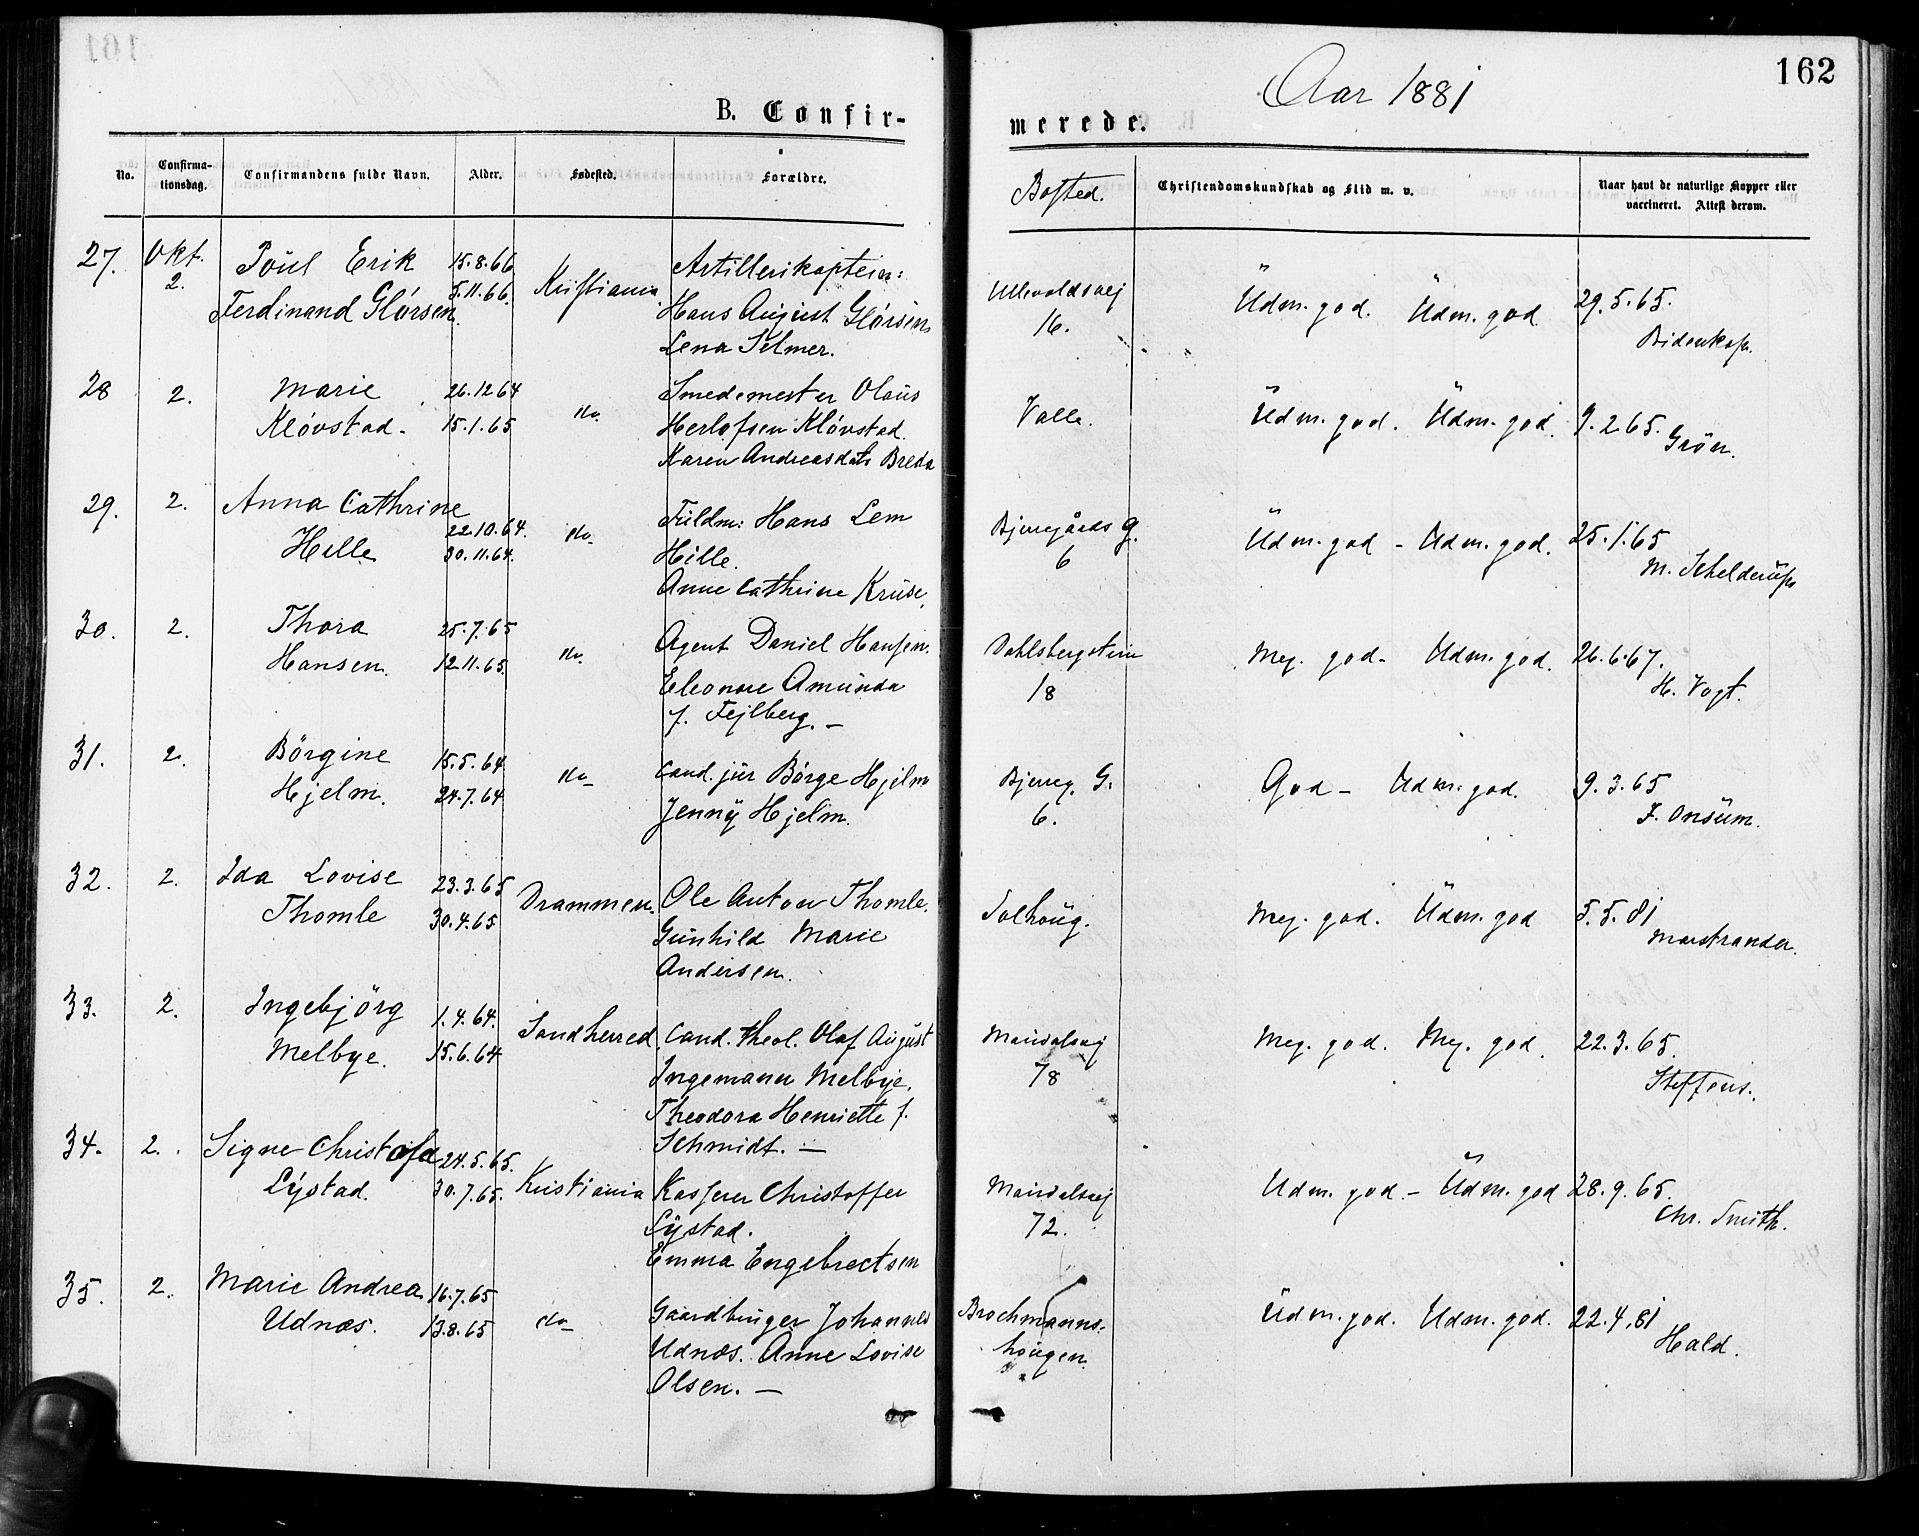 162
Aar 1881
B. Confir-
merede.
No.
Confirma-
tionsdag.
Confirmandens fulde Navn.
Alder.
Fødested.
Forældre.
Bosted.
Christendomskundskab og Flid m. v.
Naar havt de naturlige Kopper eller
vaccineret. Attest derom.
27. Okt. 2. Poul Erik
Ferdinand Glørsen.
15.8.66
5.11.66.
Kristiania.
Artillerikaptein:
Hans August Glørsen
Lena Selmer.
Ullevoldsvej
16.
Udm. god. Udm. god.
29.5.65.
Bidenkap.
28 2. Marie
Kløvstad.
26.12 64
15.1.65
do.
Smedemester Olaus
Herlofsen Kløvstad.
Karen Andreasdatr Breda
Valle.
Udm. god. Udm. god.
9.2.65.
Grön.
29. 2. Anna Cathrine
Hille
22.10.64.
30.11.64.
do.
Fuldm: Hans Lem
Hille.
Anne Cathrine Kruse.
Bjerregårds g.
6
Udm. god - Udm. god.
25.1.65
M. Schelderup
30. 2. Thora
Hansen.
25.7.65
12.11.65.
do.
Agent Daniel Hansen.
Eleonore Amunda
f. Fejlberg. -
Dahlsbergstien
18
Meg. god - Udm. god.
26.6.67.
H. Vogt.
31. 2. Börgine
Hjelm.
15.5.64
24.7.64
do
cand. jur Börge Hjelm
Jenny Hjelm.
Bjerreg. G.
6.
God - Udm. god.
9.3.65
F. Onsum.
32. 2. Ida Lovise
Thomle
23.3.65
30.4.65
Drammen.
Ole Anton Thomle.
Gunhild Marie
Andersen.
Solhoug.
Meg. god. Udm. god
5.5.81
Marstrander.
33. 2. Ingebjörg
Melbye.
1.4.64.
15.6.64
Sandherred.
Cand. theol. Olaf August
Ingemann Melbye.
Theodora Henriette f.
Schmidt. -
Maridalsvej
78
Meg. god. Meg. god.
22.3.65.
Steffens.
34. 2. Signe Christofa
Lystad.
24.5.65.
30.7.65.
Kristiania
Kasserer Christoffer
Lystad.
Emma Engebrectsen
Maridalsvej
72.
Udm. god. - Udm. god
28.9.65.
Chr. Smith.
35. 2. Marie Andrea
Udnæs.
16.7.65
13.8.65
do
Gaardbruger Johannes
Udnæs. Anne Lovise
Olsen. -
Brochmanns-
hougen.
Udm. god. Udm. god.
22.4.81
Hald.